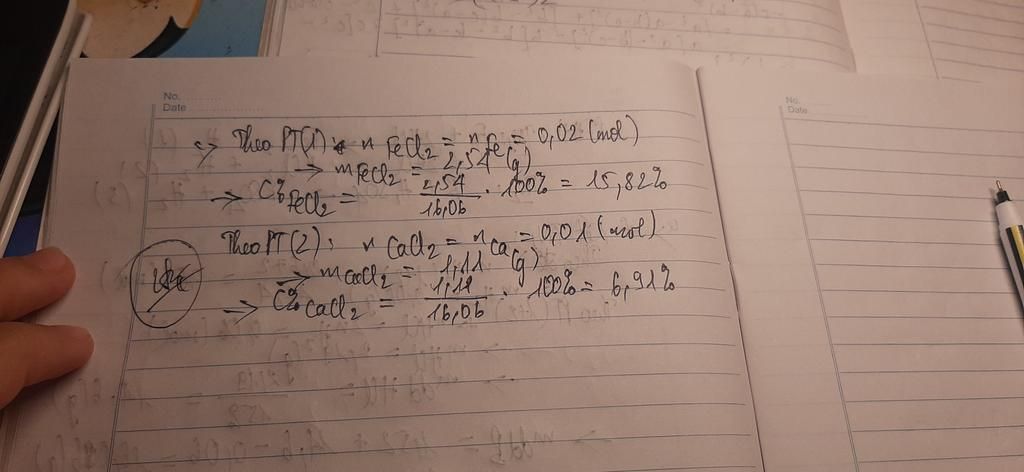 No.
Date
No.
Date
→ Theo PT(1): n FeCl2 = n Fe = 0,02 (mol)
→ m FeCl2 = 2,54 (g)
→ C% FeCl2 = 2,54/16,06 . 100% = 15,82%
Theo PT(2): n CaCl2 = n Ca = 0,01 (mol)
→ m CaCl2 = 1,11 (g)
→ C% CaCl2 = 1,11/16,06 . 100% = 6,91%